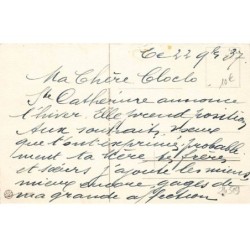 Ce 22 9bre 37.
Ma Chère Cloclo
Ste Catherine annonce
l'hiver. Elle prend position
Aux souhaits, vœux
que t'ont exprimés probable
ment ta Mère tes frères
et sœurs j'ajoute les miens
mieux encore gages de
ma grande affection